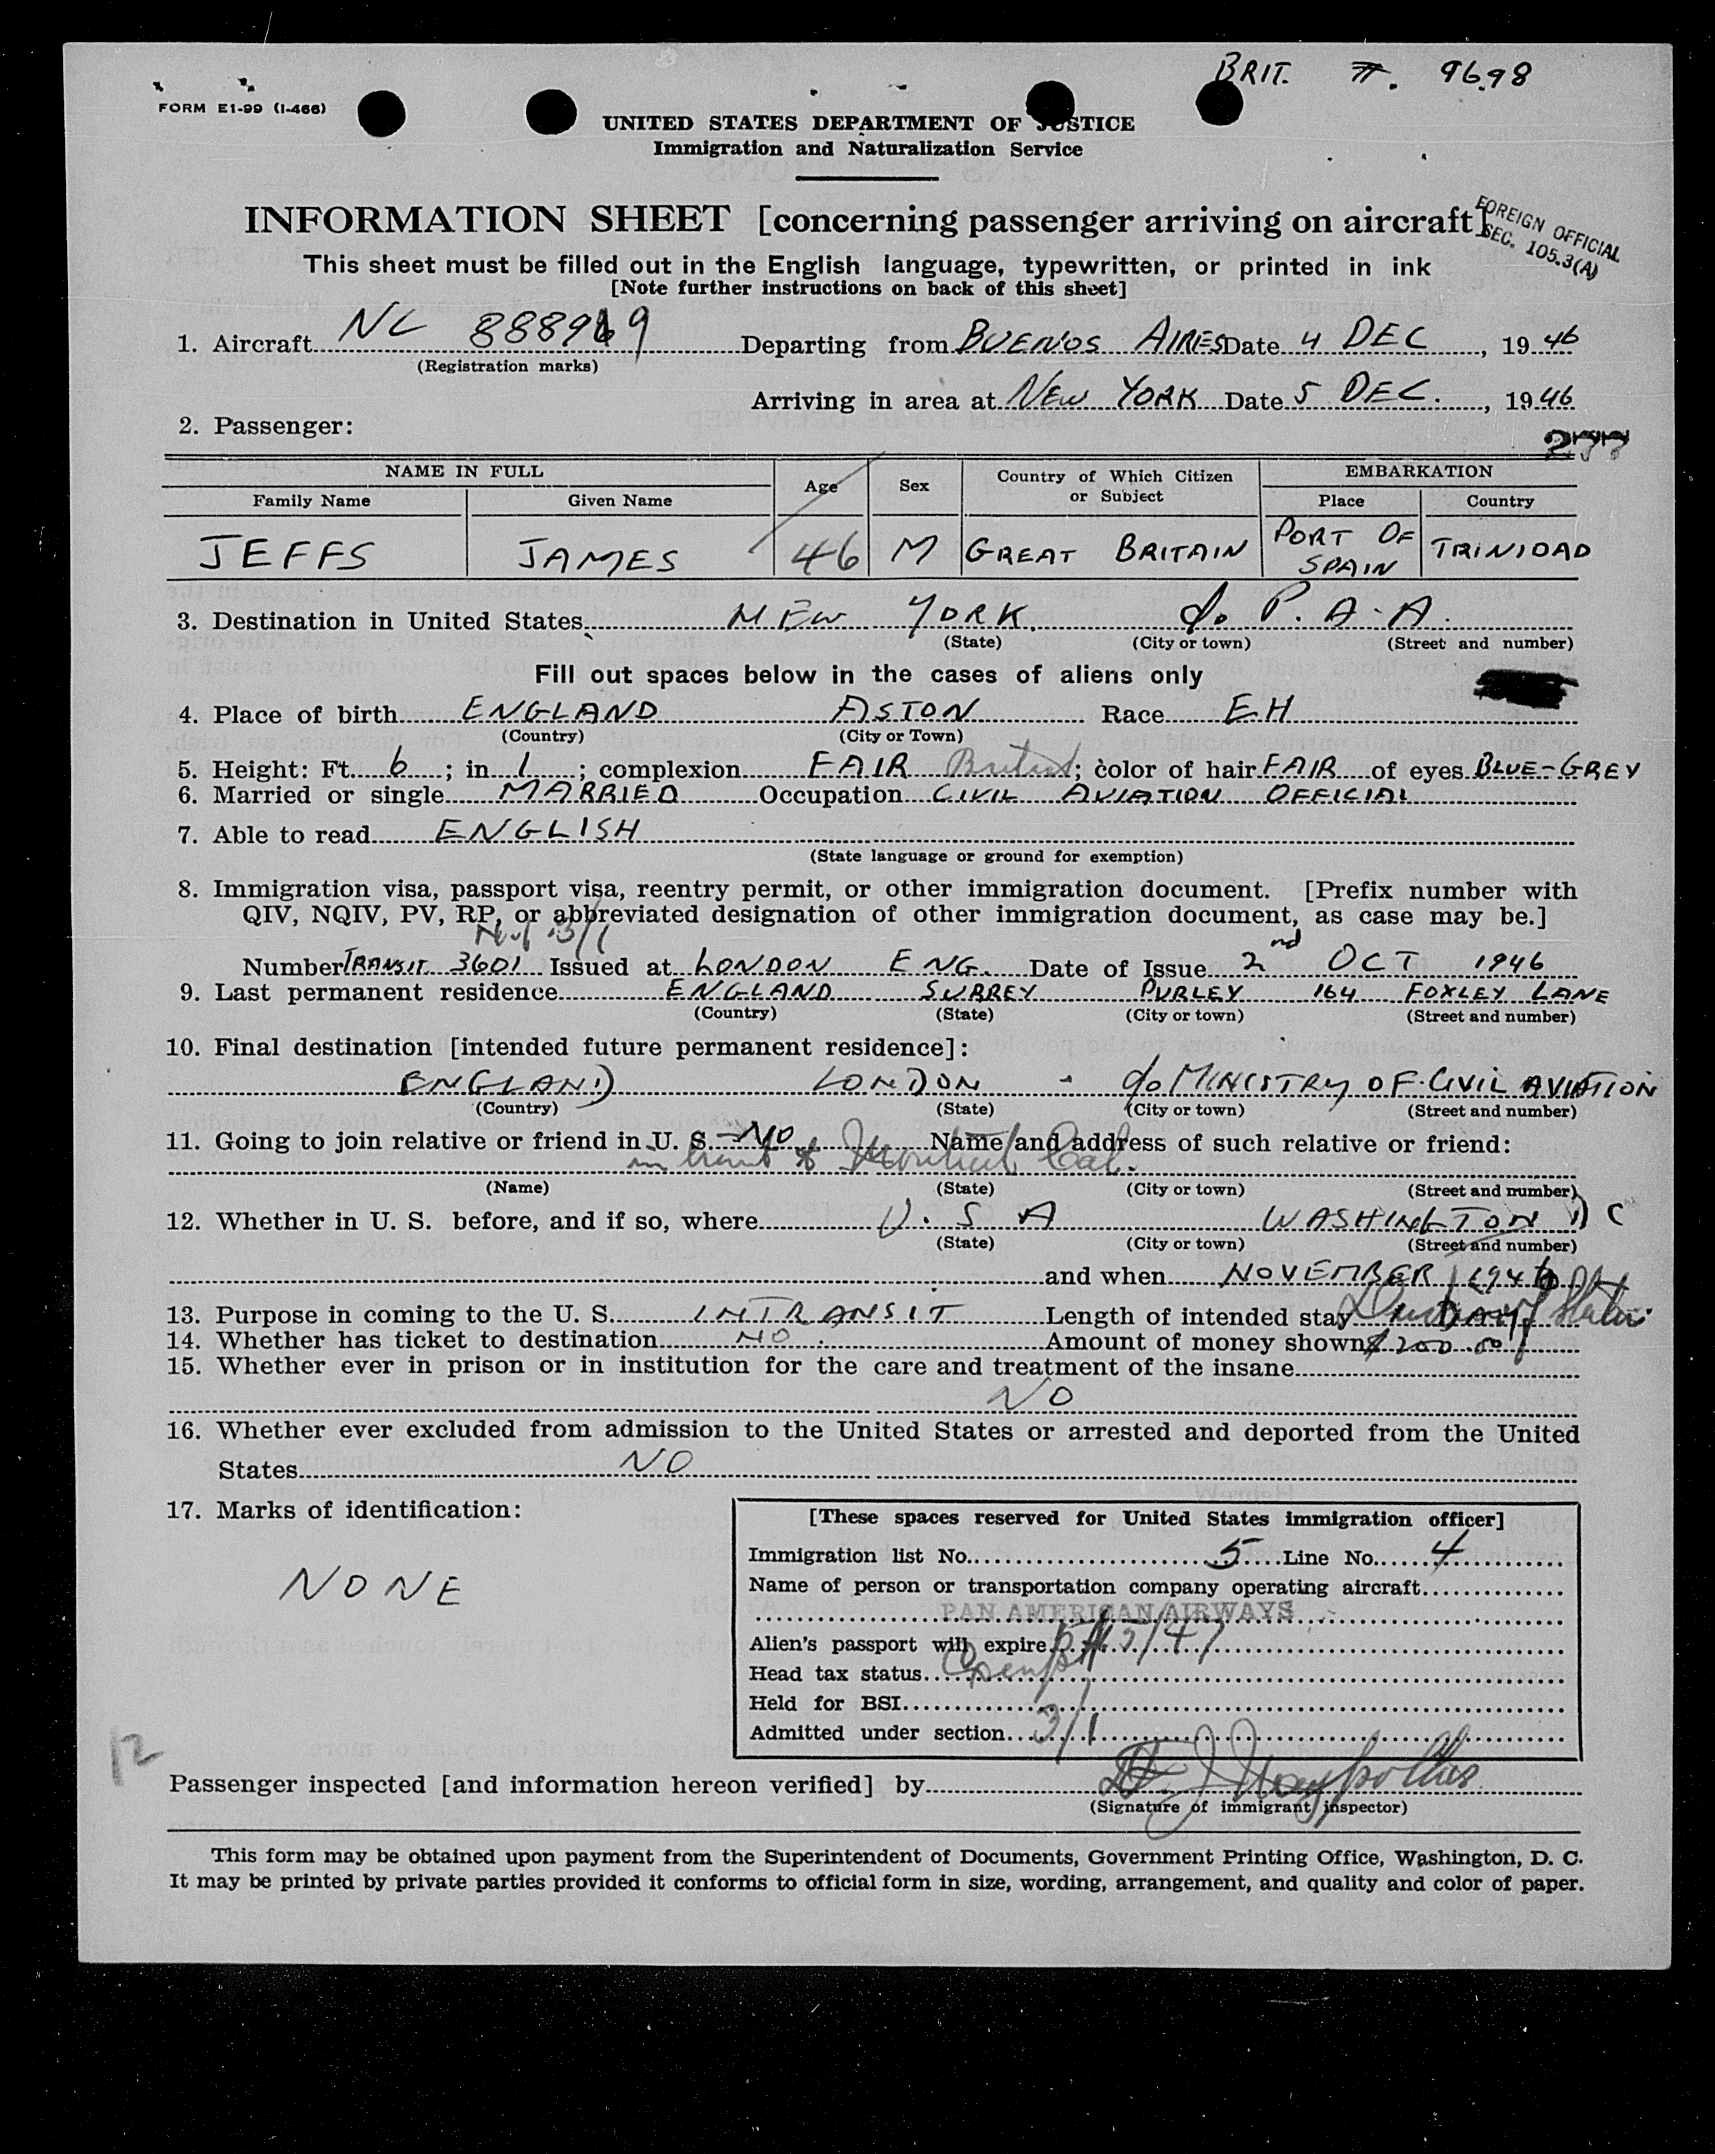 BRIT. 9698
FORM E1-99 (I-466)
UNITED STATES DEPARTMENT OF JUSTICE
Immigration and Naturalization Service
INFORMATION SHEET [concerning passenger arriving on aircraft]
FOREIGN OFFICIAL
SEC. 105.3(A)
This sheet must be filled out in the English language, typewritten, or printed in ink
[Note further instructions on back of this sheet]
1. Aircraft NC Departing from BUENOS AIRES Date 4 DEC, 1946
(Registration marks)
Arriving in area at NEW YORK Date 5 DEC., 1946
2. Passenger:
277
NAME IN FULL Age Sex Country of Which Citizen or Subject EMBARKATION
Family Name Given Name Place Country
JEFFS JAMES 46 M GREAT BRITAIN PORT OF SPAIN TRINIDAD
3. Destination in United States NEW YORK. c/o P.A.A.
(State) (City or town) (Street and number)
Fill out spaces below in the cases of aliens only
4. Place of birth ENGLAND ASTON Race EH
(Country) (City or Town)
5. Height: Ft. 6; in. 1; complexion FAIR British; color of hair FAIR of eyes BLUE-GREY
6. Married or single MARRIED Occupation CIVIL AVIATION OFFICIAL
7. Able to read ENGLISH
(State language or ground for exemption)
8. Immigration visa, passport visa, reentry permit, or other immigration document. [Prefix number with
QIV, NQIV, PV, RP, or abbreviated designation of other immigration document, as case may be.]
3/1
Number TRANSIT 3601 Issued at LONDON ENG. Date of Issue 2nd OCT 1946
9. Last permanent residence ENGLAND SURREY PURLEY 164 FOXLEY LANE
(Country) (State) (City or town) (Street and number)
10. Final destination [intended future permanent residence]:
ENGLAND LONDON - c/o MINISTRY OF CIVIL AVIATION
(Country) (State) (City or town) (Street and number)
11. Going to join relative or friend in U. S. - NO Name and address of such relative or friend:
in transit to Montreal Can.
(Name) (State) (City or town) (Street and number)
12. Whether in U. S. before, and if so, where U.S A WASHINGTON D C
(State) (City or town) (Street and number)
and when NOVEMBER 1946
13. Purpose in coming to the U. S. INTRANSIT Length of intended stay 1 DAY
14. Whether has ticket to destination NO Amount of money shown $200.00
15. Whether ever in prison or in institution for the care and treatment of the insane
NO
16. Whether ever excluded from admission to the United States or arrested and deported from the United
States NO
17. Marks of identification:
NONE
[These spaces reserved for United States immigration officer]
Immigration list No. 5 Line No. 4
Name of person or transportation company operating aircraft
PAN AMERICAN AIRWAYS
Alien's passport will expire
Head tax status Exempt
Held for BSI
Admitted under section 3/1
12
Passenger inspected [and information hereon verified] by
(Signature of immigrant inspector)
This form may be obtained upon payment from the Superintendent of Documents, Government Printing Office, Washington, D. C.
It may be printed by private parties provided it conforms to official form in size, wording, arrangement, and quality and color of paper.